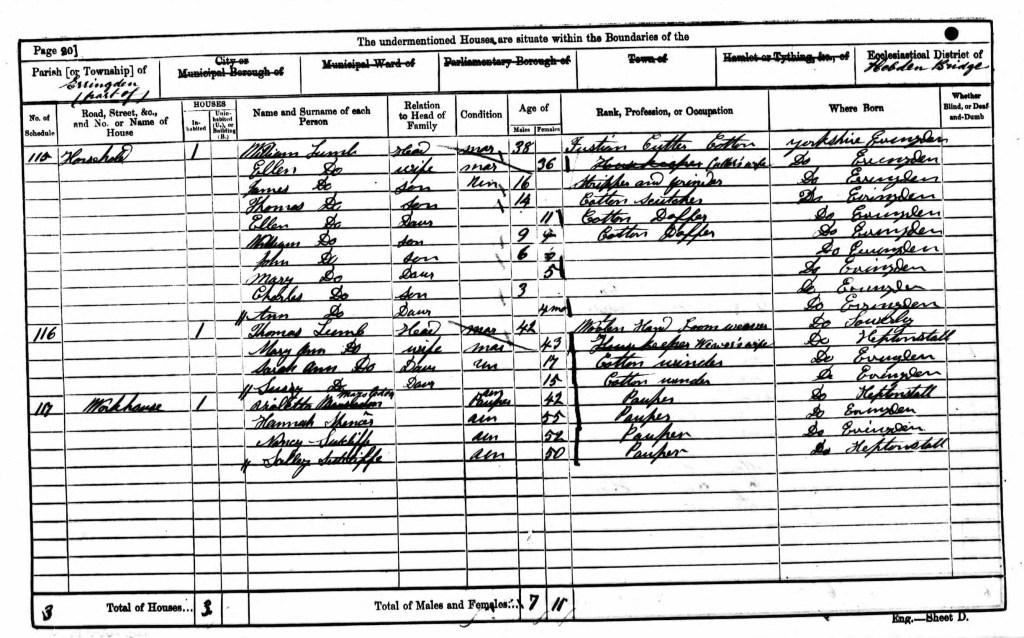 Page 20]
The undermentioned Houses are situate within the Boundaries of the
Parish [or Township] of
Erringden
(part of)
City or
Municipal Borough of
Municipal Ward of
Parliamentary Borough of
Town of
Hamlet or Tything, &c., of
Ecclesiastical District of
Hebden Bridge
No. of Schedule
Road, Street, &c., and No. or Name of House
HOUSES
In-habited
Unin-habited (U.), or Building (B.)
Name and Surname of each Person
Relation to Head of Family
Condition
Age of
Males
Females
Rank, Profession, or Occupation
Where Born
Whether Blind, or Deaf-and-Dumb
115 1 William Lumb Head mar 38 Fustian Cutter Cotton Yorkshire Erringden
Ellen Do wife mar 36 Housekeeper Cutter's wife Do Erringden
James Do son Un 16 Stripper and grinder Do Erringden
Thomas Do son 14 Cotton Scutcher Do Erringden
Ellen Do Daur 11 Cotton Doffer Do Erringden
William Do son 9 Cotton Doffer Do Erringden
John Do son 6 Do Erringden
Mary Do Daur 5 Do Erringden
Charles Do son 3 Do Erringden
Ann Do Daur 4 mo Do Erringden
116 1 Thomas Lumb Head mar 42 Woolen Hand Loom weaver Do Sowerby
Mary Ann Do wife mar 43 Housekeeper Weaver's wife Do Heptonstall
Sarah Ann Do Daur un 17 Cotton winder Do Erringden
Do Daur 15 Cotton winder Do Erringden
117 Workhouse 1 Pauper 42 Pauper Do Heptonstall
Hannah Spencer 55 Pauper Do Erringden
Nancy Sutcliffe 52 Pauper Do Erringden
Salley Sutcliffe 50 Pauper Do Heptonstall
3 Total of Houses... 3 Total of Males and Females... 7 11
Eng.—Sheet D.